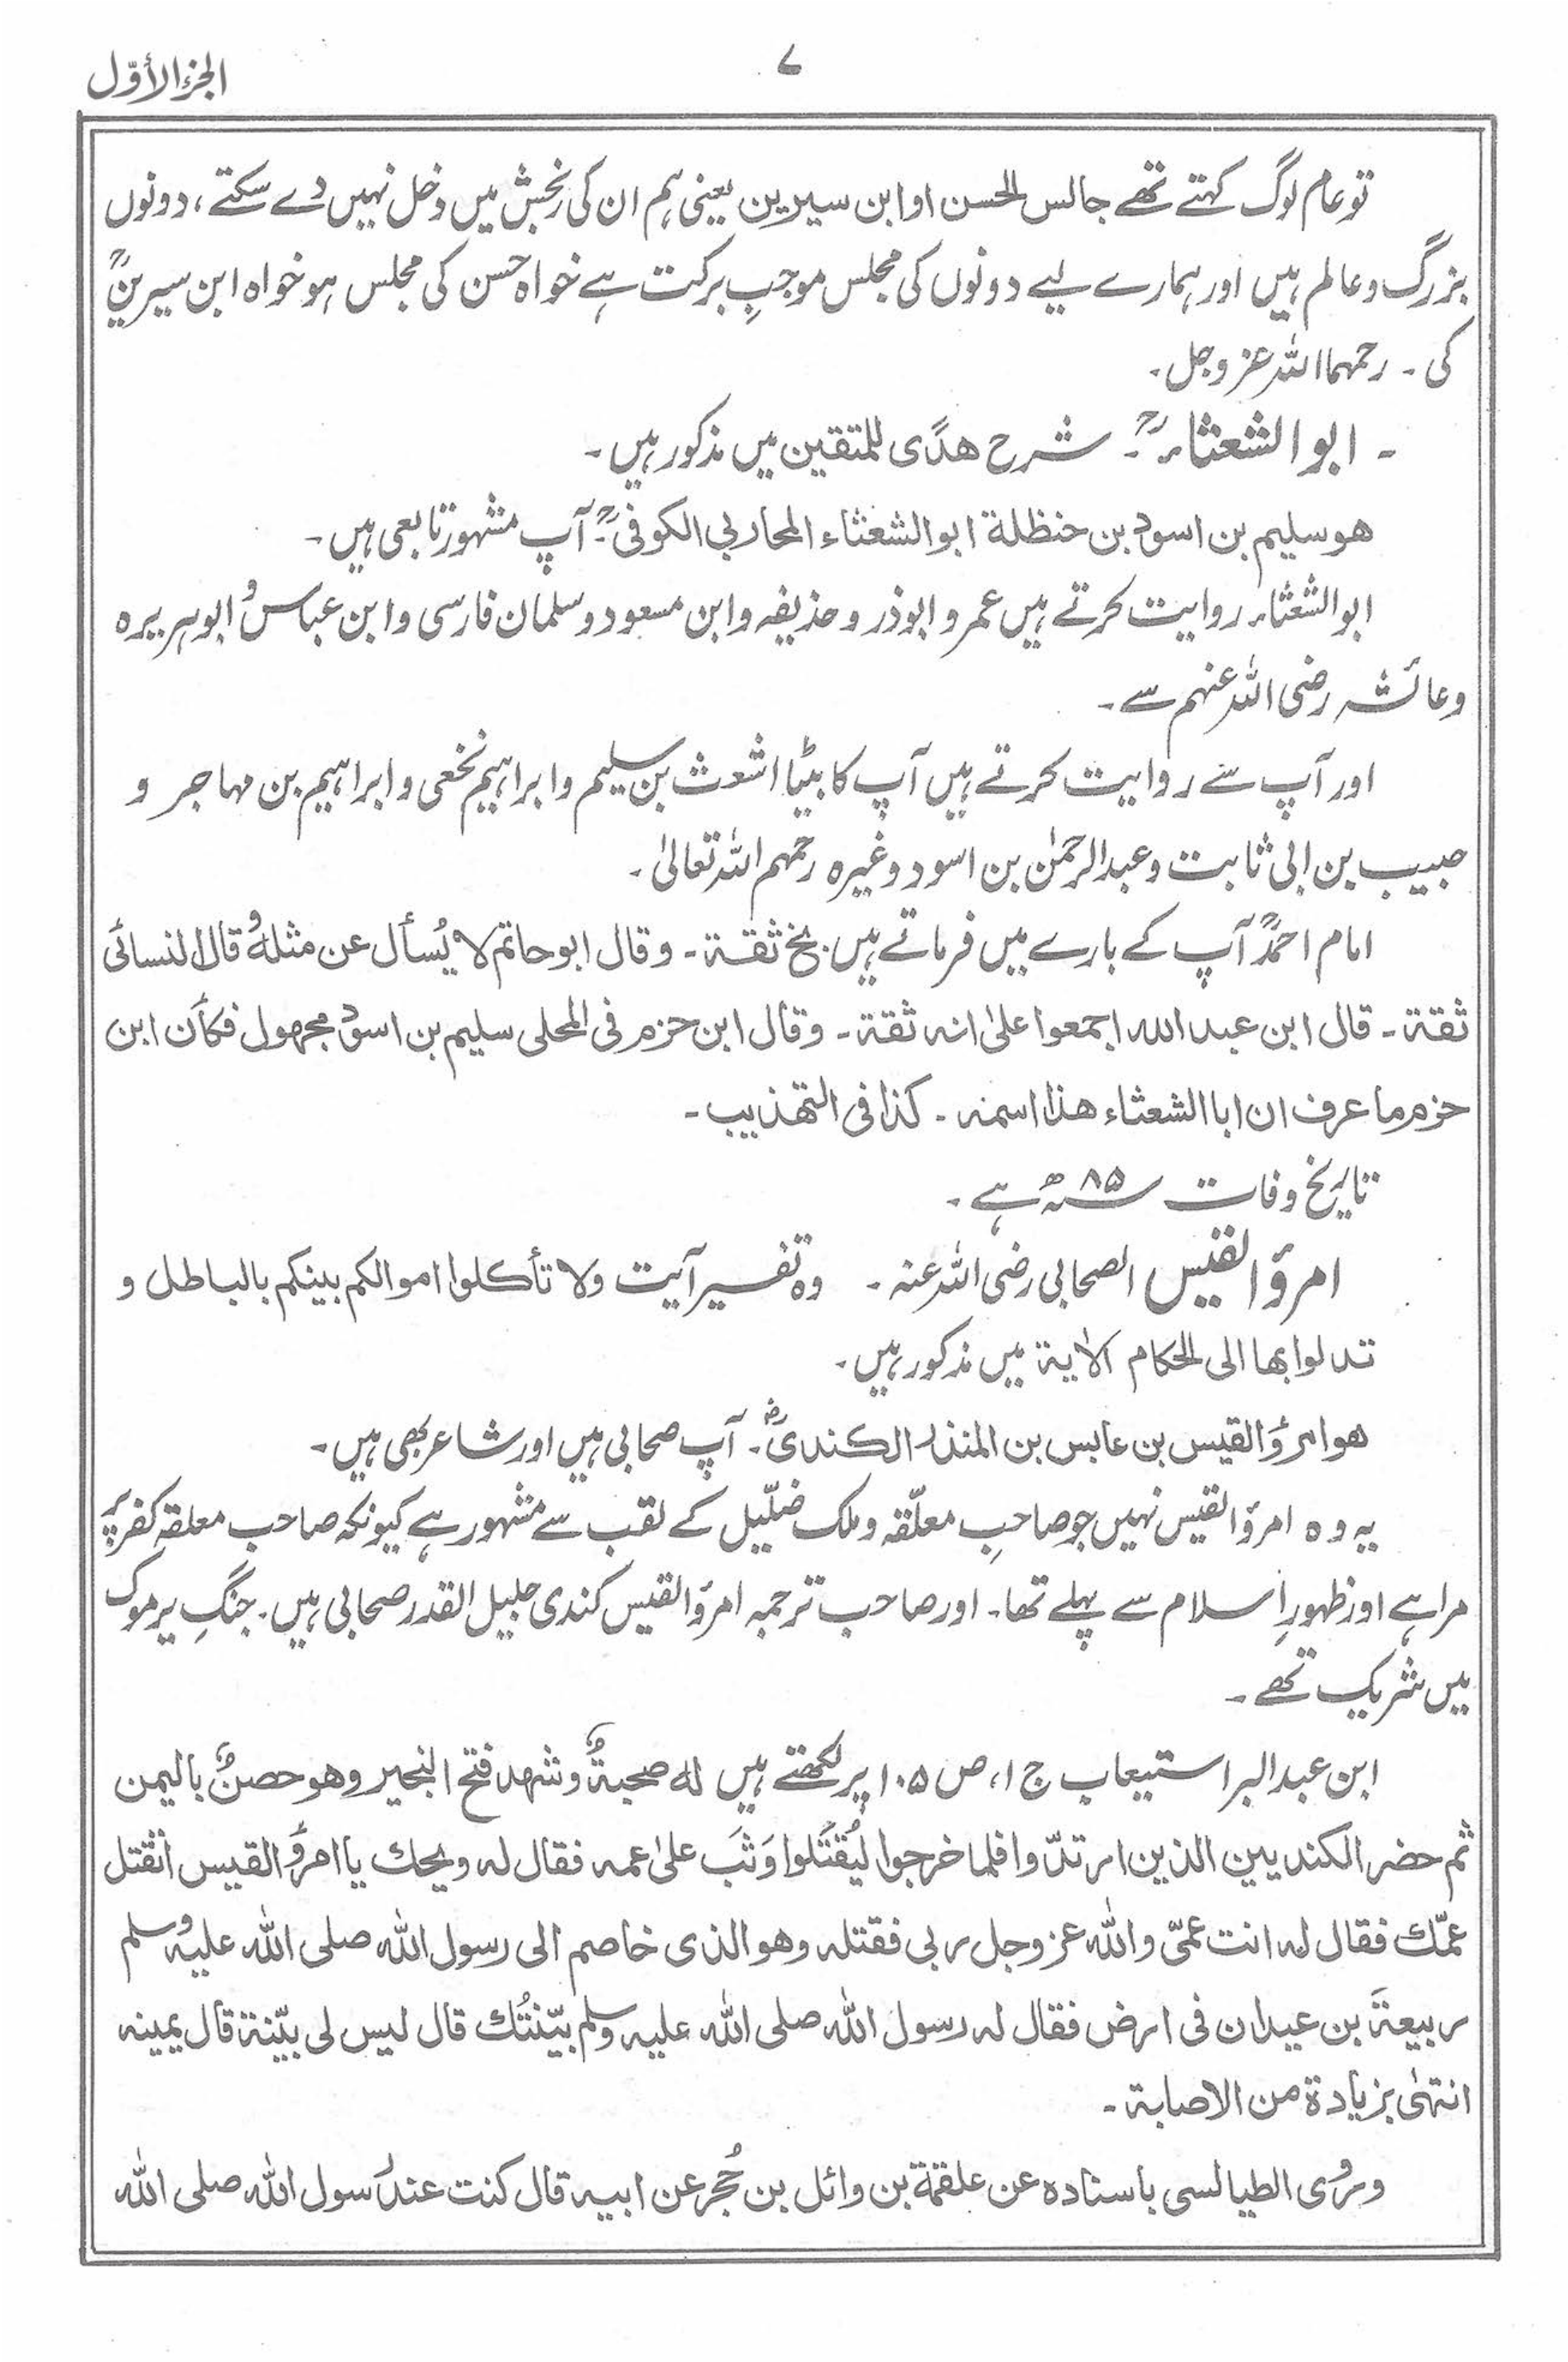 الجزء الأوّل
۷
تو عام لوگ کہتے تھے جالس الحسن او ابن سیرین یعنی ہم ان کی رنجش میں دخل نہیں دے سکتے، دونوں
بزرگ و عالم ہیں اور ہمارے لیے دونوں کی مجلس موجبِ برکت ہے خواہ حسن کی مجلس ہو خواہ ابن سیرینؒ
کی ۔ رحمہما اللہ عز وجل۔
۔ ابو الشعثاءؒ ۔ شرح ھدًی للمتقین میں مذکور ہیں ۔
ھو سلیم بن اسود بن حنظلة ابو الشعثاء المحاربی الکوفیؒ ۔ آپ مشہور تابعی ہیں ۔
ابو الشعثاء روایت کرتے ہیں عمر و ابوذر و حذیفہ و ابن مسعود و سلمان فارسی و ابن عباس و ابوہریرہ
و عائشہ رضی اللہ عنہم سے ۔
اور آپ سے روایت کرتے ہیں آپ کا بیٹا اشعث بن سلیم و ابراہیم نخعی و ابراہیم بن مہاجر و
حبیب بن ابی ثابت و عبدالرحمٰن بن اسود وغیرہ رحمہم اللہ تعالیٰ ۔
امام احمدؒ آپ کے بارے میں فرماتے ہیں بخ ثقة ۔ وقال ابو حاتم لا یُسأل عن مثله و قال النسائی
ثقة ۔ قال ابن عبد الله اجمعوا علیٰ انه ثقة ۔ وقال ابن حزم فی المحلی سلیم بن اسود مجھول فکأن ابن
حزم ما عرف ان ابا الشعثاء ھذا اسمه ۔ کذا فی التھذیب ۔
تاریخ وفات ۸۵ سنہ ھ ہے ۔
امرؤ القیس الصحابی رضی اللہ عنہ ۔ وہ تفسیر آیت ولا تأکلوا اموالکم بینکم بالباطل و
تدلوا بھا الی الحکام الاٰیة میں مذکور ہیں ۔
ھو امرؤ القیس بن عابس بن المنذر الکندیؓ ۔ آپ صحابی ہیں اور شاعر بھی ہیں ۔
یہ وہ امرؤ القیس نہیں جو صاحبِ معلّقہ و ملک ضلّیل کے لقب سے مشہور ہے کیونکہ صاحب معلقہ کفر پر
مرا ہے اور ظہورِ اسلام سے پہلے تھا ۔ اور صاحب ترجمہ امرؤ القیس کندی جلیل القدر صحابی ہیں ۔ جنگِ یرموک
میں شریک تھے ۔
ابن عبدالبر استیعاب ج ۱، ص ۱۰۵ پر لکھتے ہیں له صحبةٌ و شھد فتح النجیر وھو حصنٌ بالیمن
ثم حضر الکندیین الذین ارتدّوا فلما خرجوا لیُقتَلوا وَثَبَ علیٰ عمه فقال له ویحك یا امرؤ القیس أتقتل
عمّك فقال له انت عمّی والله عز وجل ربی فقتله وھو الذی خاصم الی رسول الله صلی الله علیه وسلم
ربیعةَ بن عیدان فی ارض فقال له رسول الله صلی الله علیه وسلم بیّنتُك قال لیس لی بیّنة قال یمینه
انتھٰی بزیادة من الاصابة ۔
وروی الطیالسی باسناده عن علقمة بن وائل بن حُجر عن ابیه قال کنت عند رسول الله صلی الله